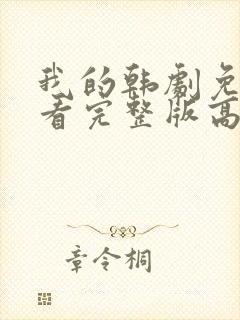 我的韩剧免
看完整版高
章令桐